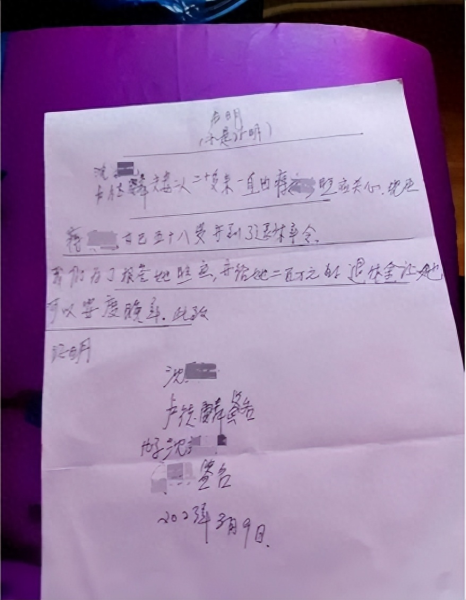 声明
(不是证明)
沈
夫妻二人二十多年来一直由蒋 照应关心
蒋 自己五十八岁并到了退休年令。
我们为了报答她照应,并给她二百万元的退休金让她
可以安度晚年.此致
证明
沈
卢德麟签名
沈
签名
2023年3月9日.